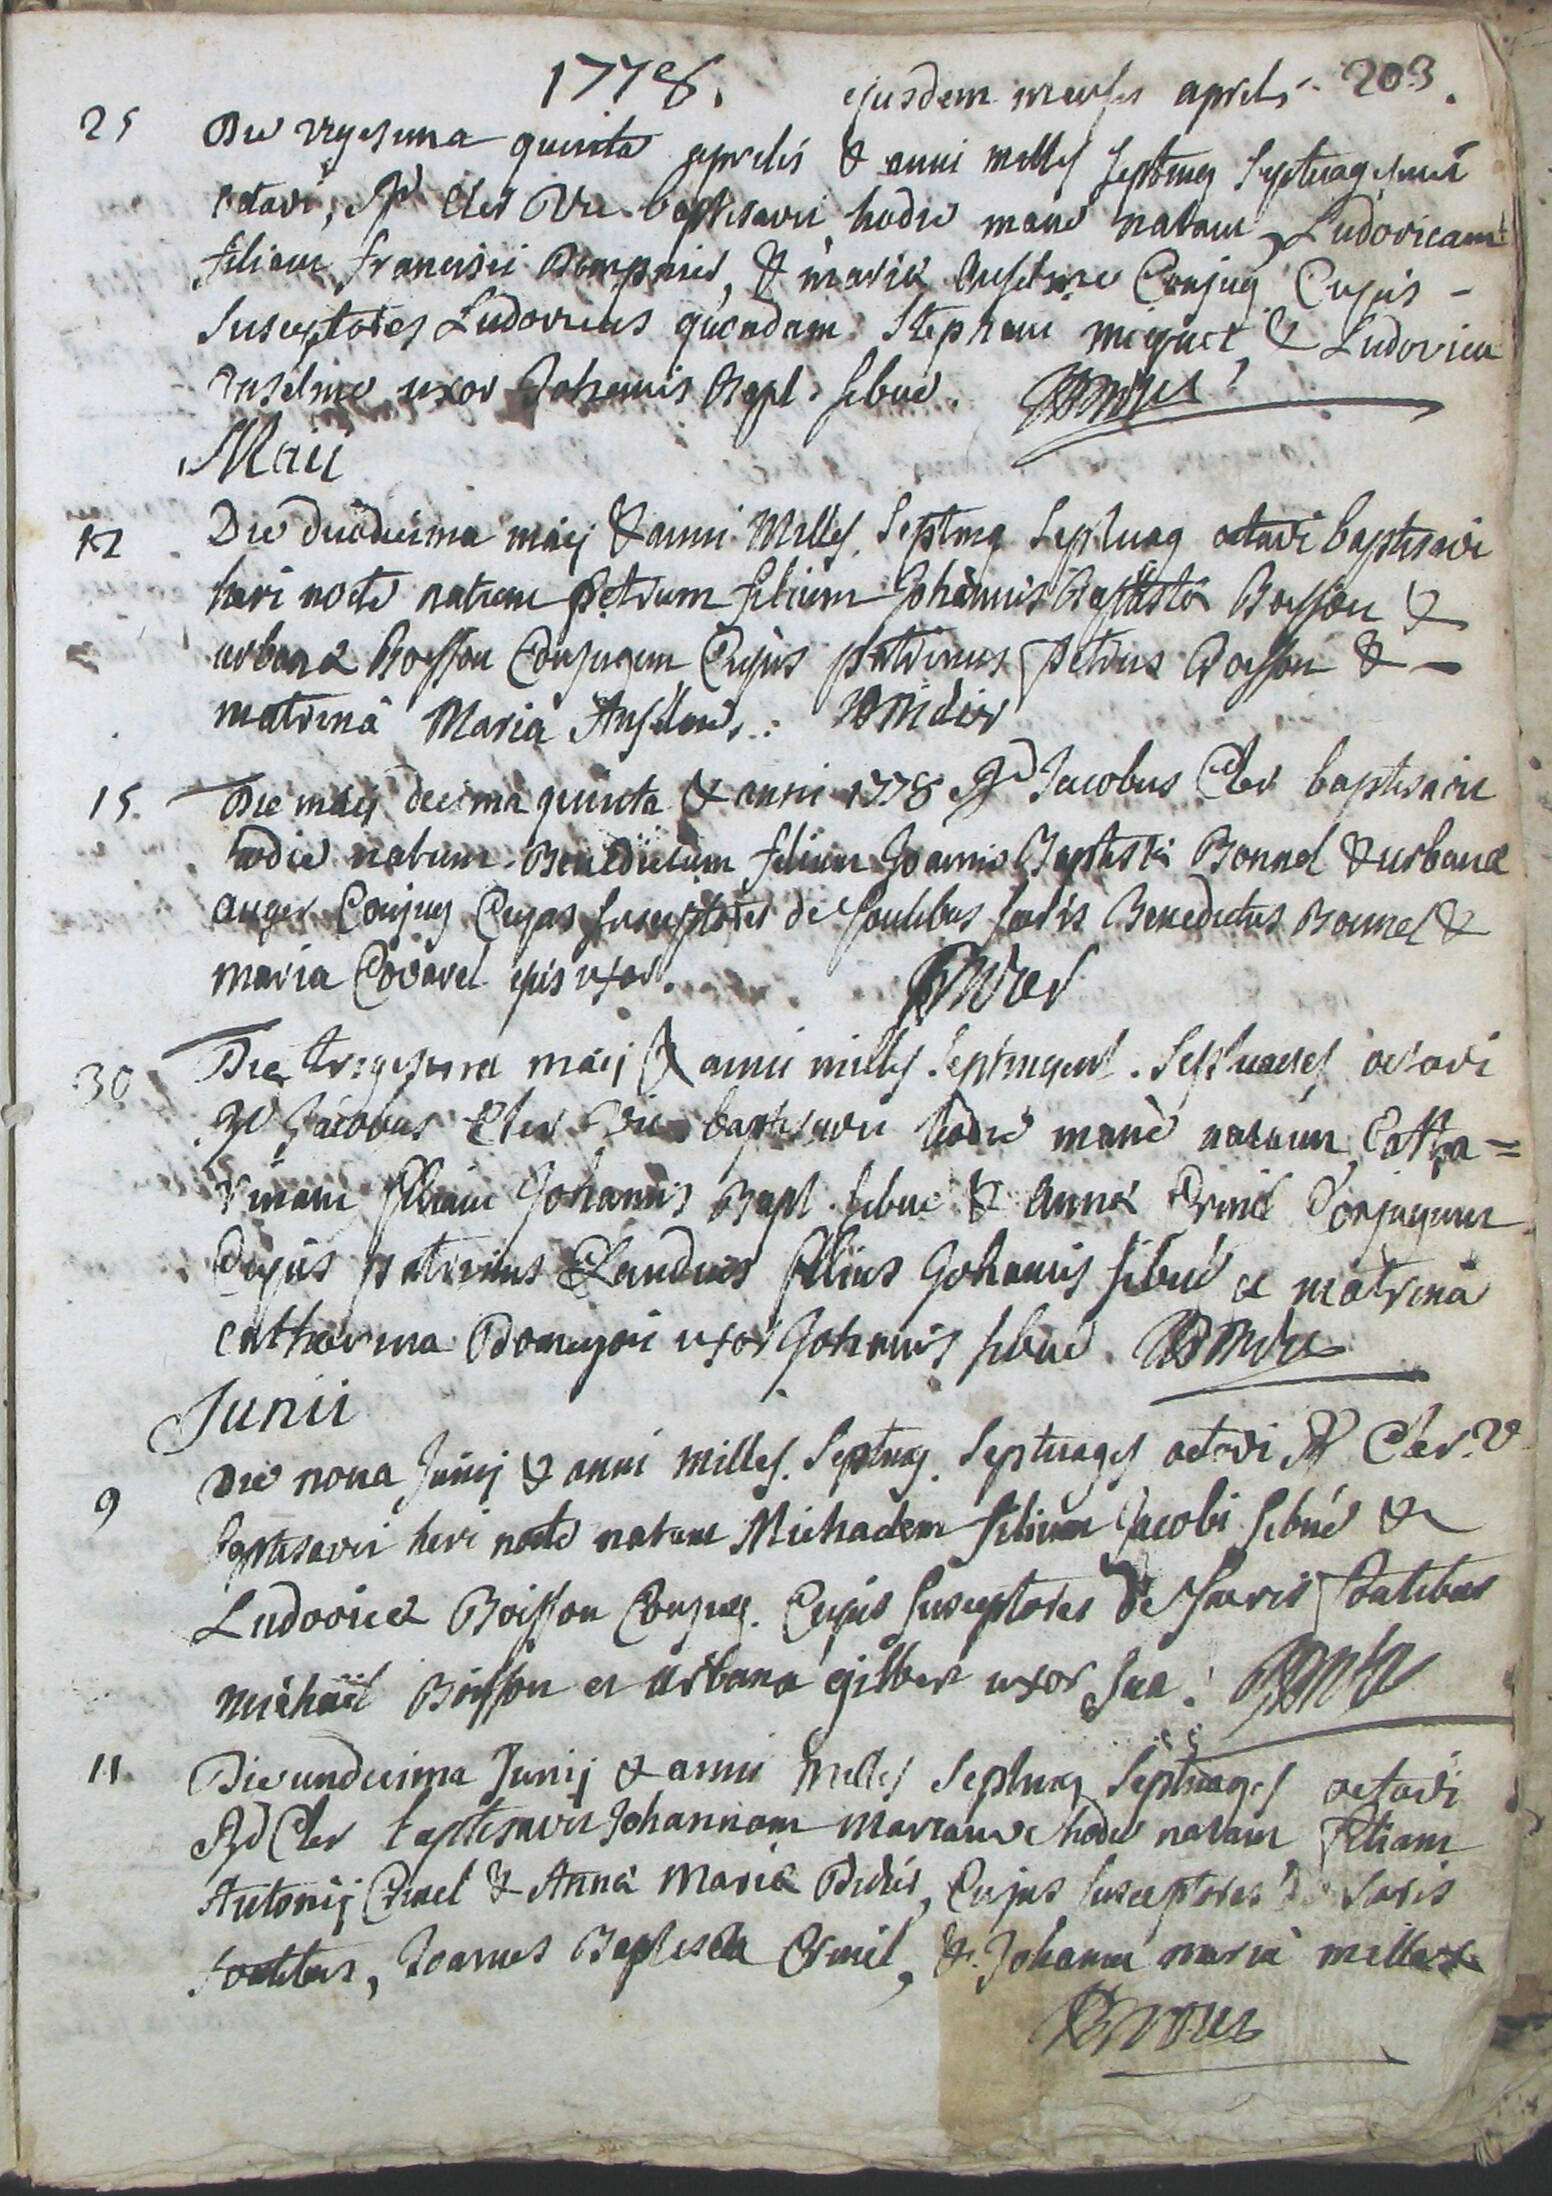 1778. ejusdem mensis aprilis. 203.
25 Die vigesima quinta aprilis & anni milles septing septuagesimi
octavi, Rd Cler Vic. baptisavi hodie mane natam Ludovicam
filiam francisci Dompnier, & mariæ Anselme Conjug Cujus -
Susceptores Ludovicus quondam Stephani miquet, & Ludovica
Anselme uxor Johannis Bapt. sibué.
Maii
12 Die duodecima maij & anni Milles. Septing Septuag octavi baptisavi
heri nocte natum petrum filium Johannis Baptistæ Boisson &
urbanæ Boisson Conjugum Cujus patrinus petrus Boisson & -
matrina Maria Anselme.
15. Die maij decima quinta & anni 1778 Rd Jacobus Cler baptisavi
hodie natum Benedictum filium Joannis Baptistæ Bonnel & urbanæ
auger Conjug Cujus susceptores de fontibus sacris Benedictus Bonnel &
maria Covarel ejus uxor.
30 Die trigesima maij & anni milles. septingent. septuages octavi
Rd Jacobus Cler Vic. baptisavi hodie manè natam Catha=
rinam filiam Johannis Bapt. sibué & Annæ Conjugum
Cujus patrinus Claudius filius Johannis sibué et matrina
catharina uxor Johannis sibué.
Junii
9 Die nona Junij & anni milles. Septing. Septuages octavi Rd Cler. V
baptisavi heri nocte natum Michaelem filium Jacobi sibué &
Ludovicæ Boisson Conjug. Cujus susceptores de sacris fontibus
michaël Boisson et urbana gilbert uxor sua.
11 Die undecima Junij & anni milles Septing Septuages octavi
Rd Cler baptisavi Johannam mariam hodie natam filiam
Antonij & Annæ Mariæ Didier, Cujus susceptores de sacris
fontibus, Joannes Baptista & Johanna maria